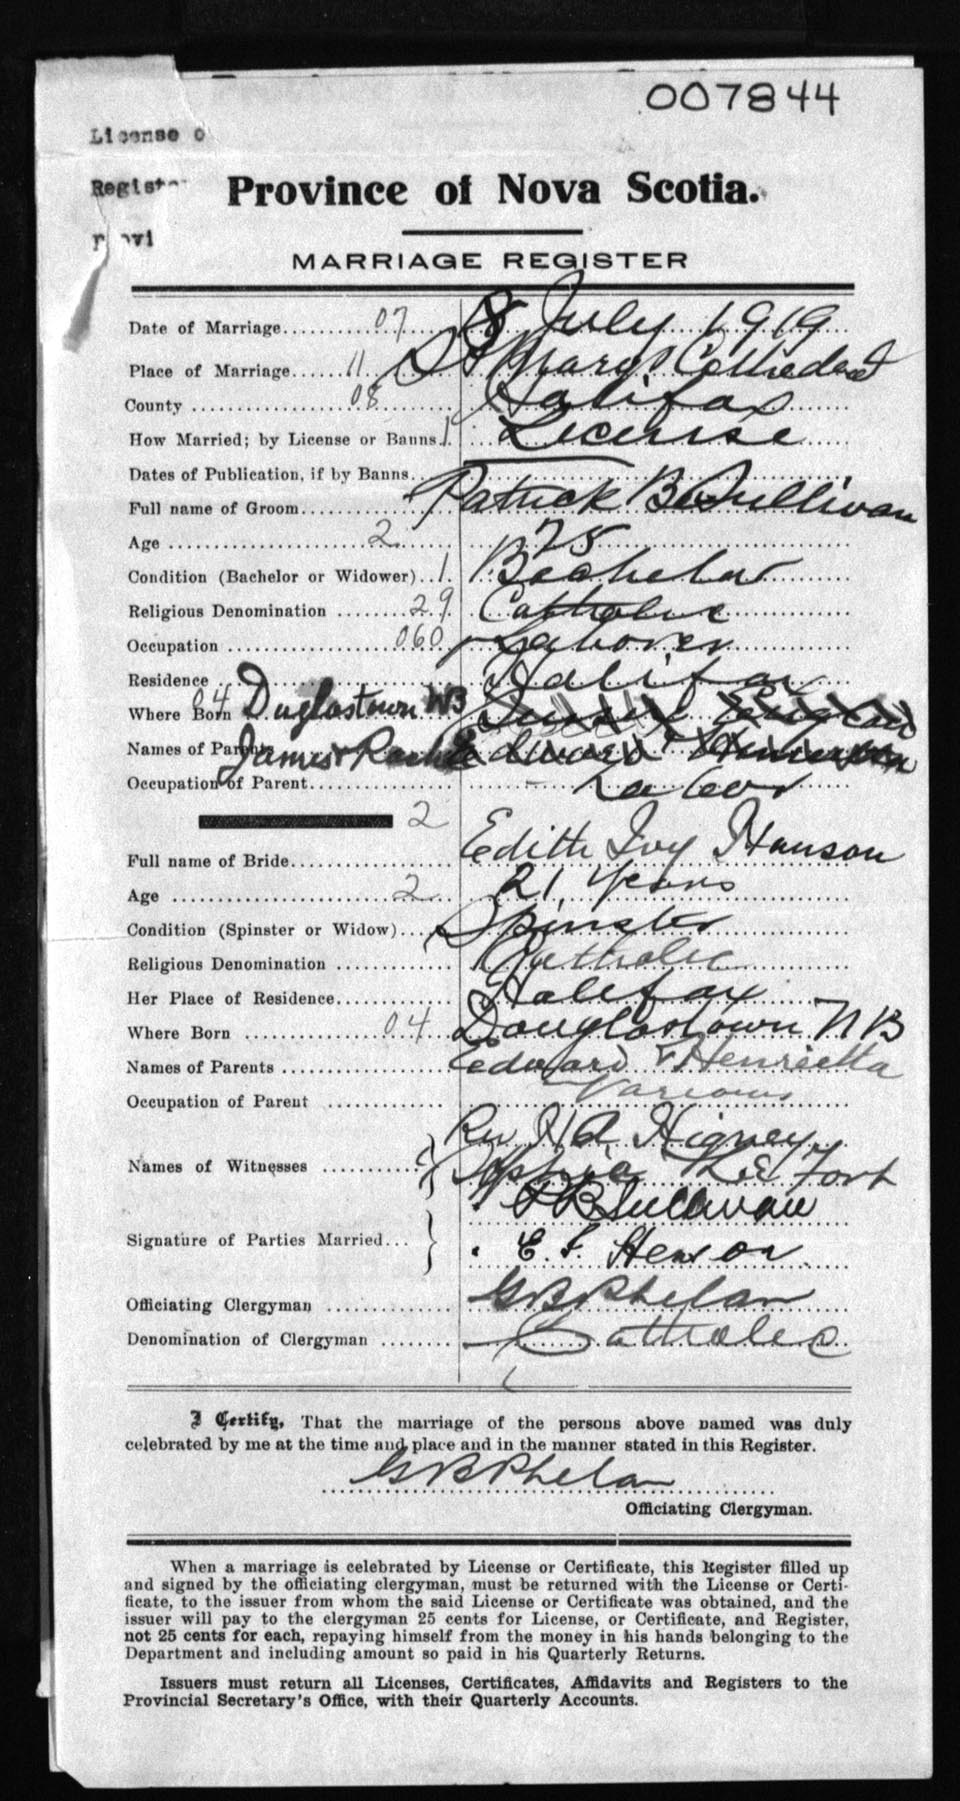 007844
License o
Regist
rovi
Province of Nova Scotia.
MARRIAGE REGISTER
Date of Marriage 07 8 July 1919
Place of Marriage 11 St Mary's Cathedral
County 08 Halifax
How Married; by License or Banns 1 License
Dates of Publication, if by Banns
Full name of Groom Patrick B Sullivan
Age 2 25
Condition (Bachelor or Widower) 1 Bachelor
Religious Denomination 29 Catholic
Occupation 060 Laborer
Residence Halifax
Where Born 04 Duglastown NB England
Names of Parents James + Edward + Henrietta
Occupation of Parent Labor
2
Full name of Bride Edith Ivy Hanson
Age 2 21 years
Condition (Spinster or Widow) Spinster
Religious Denomination Catholic
Her Place of Residence Halifax
Where Born 04 Douglastown NB
Names of Parents Edward + Henrietta
Occupation of Parent Various
Names of Witnesses Rev Higney
Sophie Le Fort
Signature of Parties Married P B Sullivan
E. I. Henson
Officiating Clergyman G B Phelan
Denomination of Clergyman Catholic
I Certify, That the marriage of the persons above named was duly
celebrated by me at the time and place and in the manner stated in this Register.
G B Phelan
Officiating Clergyman.
When a marriage is celebrated by License or Certificate, this Register filled up
and signed by the officiating clergyman, must be returned with the License or Certi-
ficate, to the issuer from whom the said License or Certificate was obtained, and the
issuer will pay to the clergyman 25 cents for License, or Certificate, and Register,
not 25 cents for each, repaying himself from the money in his hands belonging to the
Department and including amount so paid in his Quarterly Returns.
Issuers must return all Licenses, Certificates, Affidavits and Registers to the
Provincial Secretary's Office, with their Quarterly Accounts.